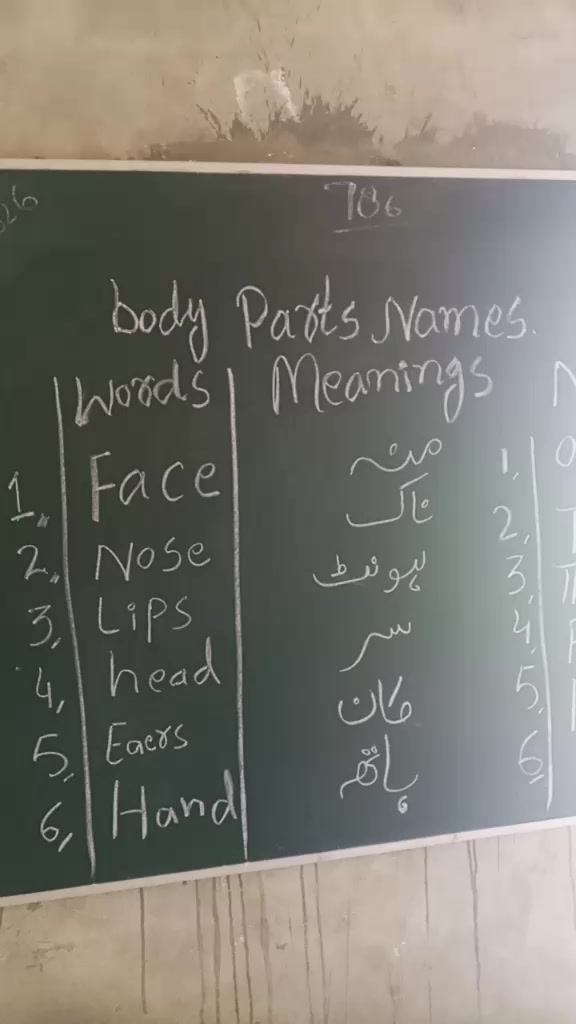 786
body Parts Names.
Words Meanings
1. Face منہ 1.
2. Nose ناک 2.
3. Lips ہونٹ 3.
4. head سر 4.
5. Eaers کان 5.
6. Hand ہاتھ 6.